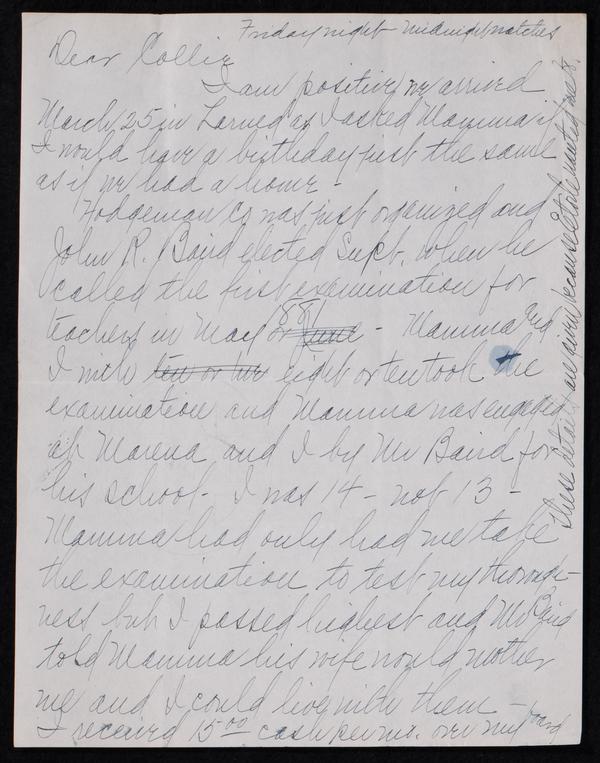 Friday night - Midnight notches
Dear Collie
I am positive we arrived
March 25 in Larned as I asked Mamma if
I would have a birthday just the same
as if we had a home -
Hodgeman Co was just organized and
John R. Baird elected Supt. when he
called the first examination for
teachers in May or June 88 - Mamma and
I with ten or twe eight or ten took the
examination and Mamma was engaged
at Marena and I by Mr Baird for
his school - I was 14 - not 13 -
Mamma had only had me take
the examination to test my thorough-
ness but I passed highest and Mr Baird
told Mamma his wife would mother
me and I could live with them -
I received 15.00 cash per mo. over my board
These details are given because Etole wanted